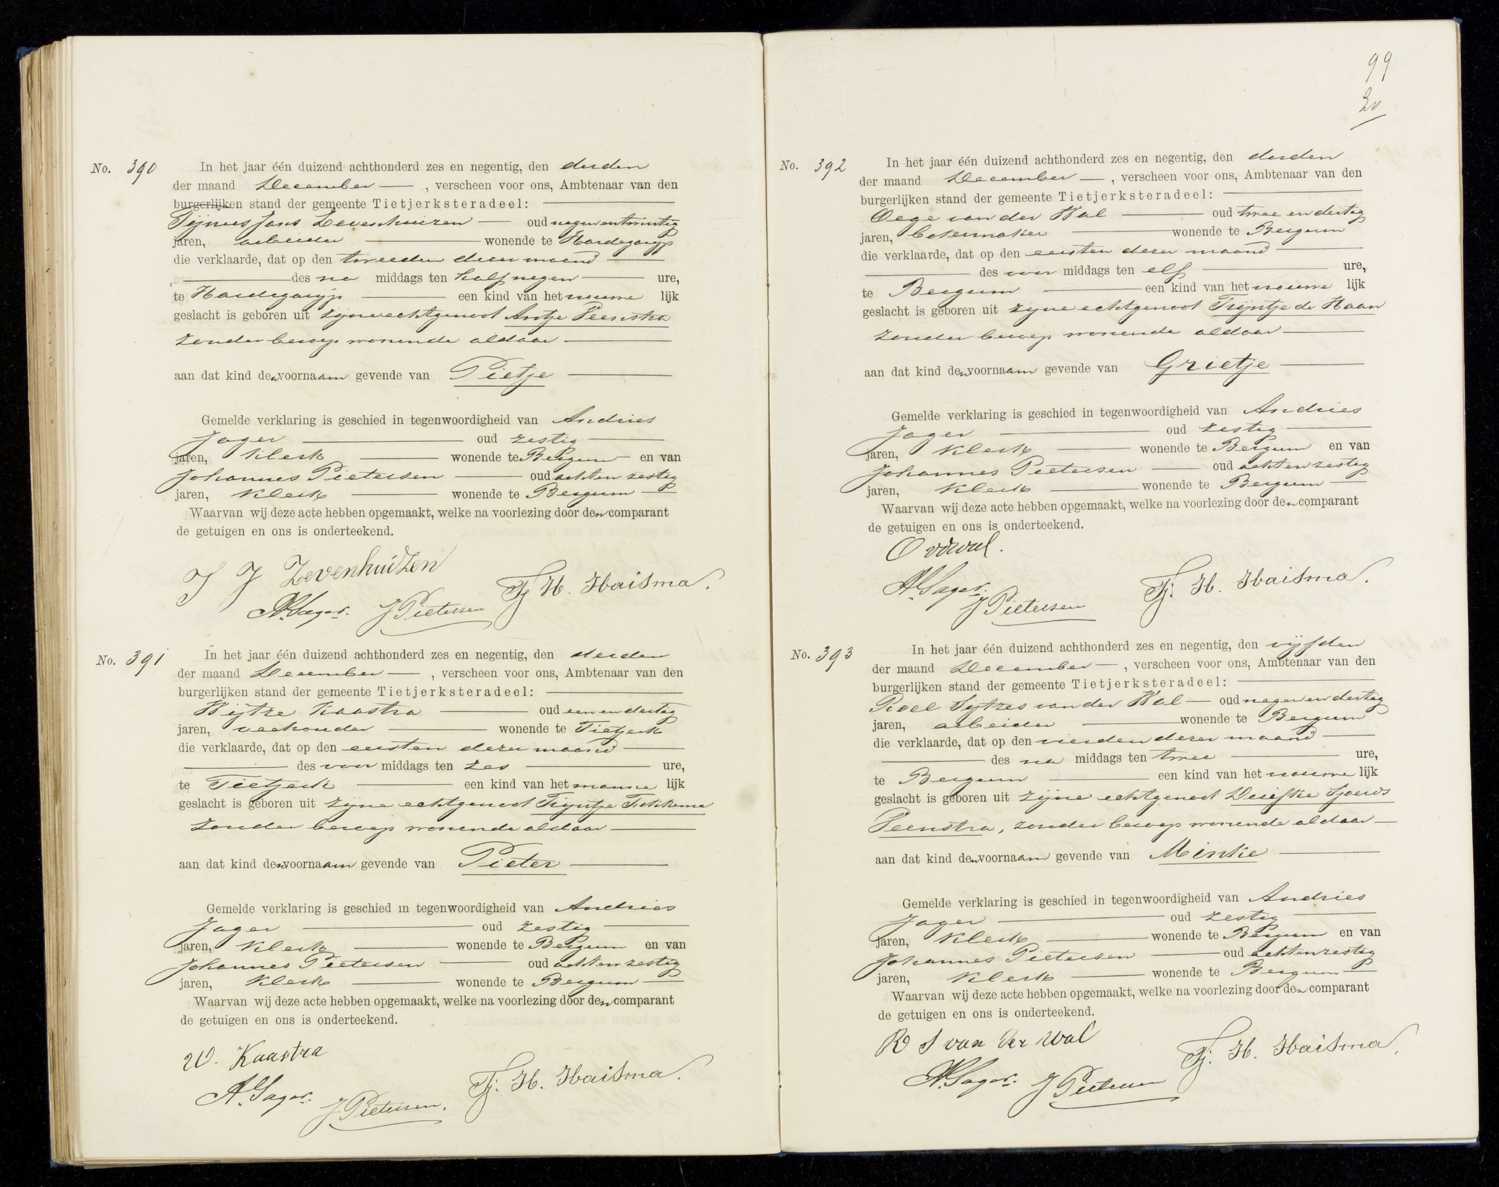 No. 390 In het jaar één duizend achthonderd zes en negentig, den derden
der maand December , verscheen voor ons, Ambtenaar van den
burgerlijken stand der gemeente Tietjerksteradeel:
Tijmes Jans Zevenhuizen oud negen en twintig
jaren, arbeider wonende te Hardegarijp
die verklaarde, dat op den tweeden dezer maand
des na middags ten half negen ure,
te Hardegarijp een kind van het vrouwe lijk
geslacht is geboren uit zijne echtgenoot Antje Feenstra
zonder beroep wonende aldaar
aan dat kind den voornaam gevende van Pietje
Gemelde verklaring is geschied in tegenwoordigheid van Andries
Jager oud zestig
jaren, klerk wonende te Bergum en van
Johannes Pietersen oud achtenzestig
jaren, klerk wonende te Bergum
Waarvan wij deze acte hebben opgemaakt, welke na voorlezing door den comparant
de getuigen en ons is onderteekend.
T J Zevenhuizen
A. Jager. J Pietersen Tj. H. Haisma.
No. 391 In het jaar één duizend achthonderd zes en negentig, den derden
der maand December , verscheen voor ons, Ambtenaar van den
burgerlijken stand der gemeente Tietjerksteradeel:
Wijtze Kaastra oud een en dertig
jaren, veehouder wonende te Tietjerk
die verklaarde, dat op den eersten dezer maand
des voor middags ten zes ure,
te Tietjerk een kind van het manne lijk
geslacht is geboren uit zijne echtgenoot Trijntje Fokkema
zonder beroep wonende aldaar
aan dat kind den voornaam gevende van Pieter
Gemelde verklaring is geschied in tegenwoordigheid van Andries
Jager oud zestig
jaren, klerk wonende te Bergum en van
Johannes Pietersen oud achtenzestig
jaren, klerk wonende te Bergum
Waarvan wij deze acte hebben opgemaakt, welke na voorlezing door den comparant
de getuigen en ons is onderteekend.
W. Kaastra
A. Jager. J Pietersen. Tj. H. Haisma.
99
No. 392 In het jaar één duizend achthonderd zes en negentig, den derden
der maand December , verscheen voor ons, Ambtenaar van den
burgerlijken stand der gemeente Tietjerksteradeel:
Oege van der Wal oud twee en dertig
jaren, wonende te Bergum
die verklaarde, dat op den eersten dezer maand
des voor middags ten elf ure,
te Bergum een kind van het vrouwe lijk
geslacht is geboren uit zijne echtgenoot Trijntje de Haan
zonder beroep wonende aldaar
aan dat kind den voornaam gevende van Grietje
Gemelde verklaring is geschied in tegenwoordigheid van Andries
Jager oud zestig
jaren, klerk wonende te Bergum en van
Johannes Pietersen oud achtenzestig
jaren, klerk wonende te Bergum
Waarvan wij deze acte hebben opgemaakt, welke na voorlezing door den comparant
de getuigen en ons is onderteekend.
O vdwal.
A. Jager. J Pietersen Tj: H. Haisma.
No. 393 In het jaar één duizend achthonderd zes en negentig, den vijfden
der maand December , verscheen voor ons, Ambtenaar van den
burgerlijken stand der gemeente Tietjerksteradeel:
Roel Sytzes van der Wal oud negen en dertig
jaren, arbeider wonende te Bergum
die verklaarde, dat op den vierden dezer maand
des na middags ten twee ure,
te Bergum een kind van het vrouwe lijk
geslacht is geboren uit zijne echtgenoot Sjoerds
Feenstra, zonder beroep wonende aldaar
aan dat kind den voornaam gevende van Minke
Gemelde verklaring is geschied in tegenwoordigheid van Andries
Jager oud zestig
jaren, klerk wonende te Bergum en van
Johannes Pietersen oud achtenzestig
jaren, klerk wonende te Bergum
Waarvan wij deze acte hebben opgemaakt, welke na voorlezing door den comparant
de getuigen en ons is onderteekend.
R S van der Wal
A. Jager. J Pietersen Tj: H. Haisma.